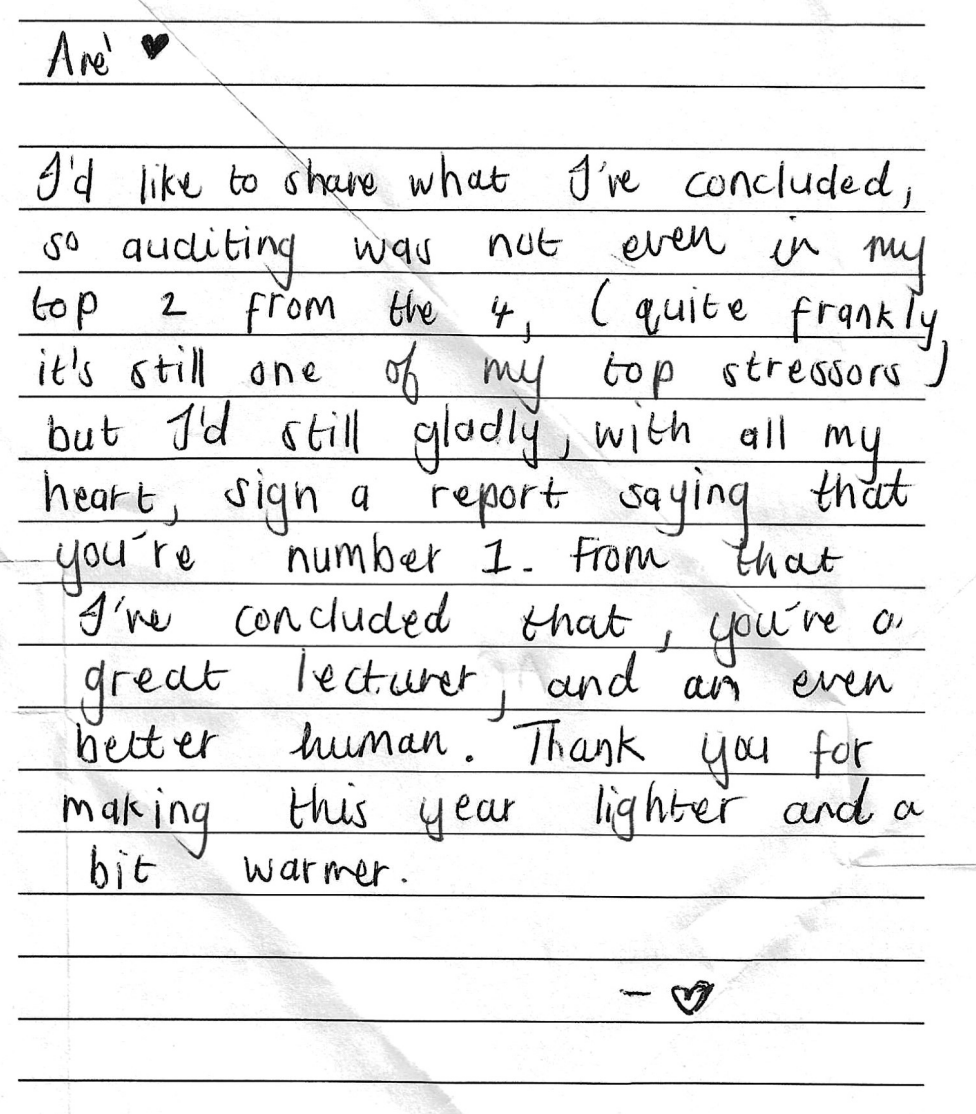 Aré ♥
I'd like to share what I've concluded,
so auditing was not even in my
top 2 from the 4, (quite frankly,
it's still one of my top stressors)
but I'd still gladly, with all my
heart, sign a report saying that
you're number 1. From that
I've concluded that, you're a
great lecturer, and an even
better human. Thank you for
making this year lighter and a
bit warmer.
- ♡